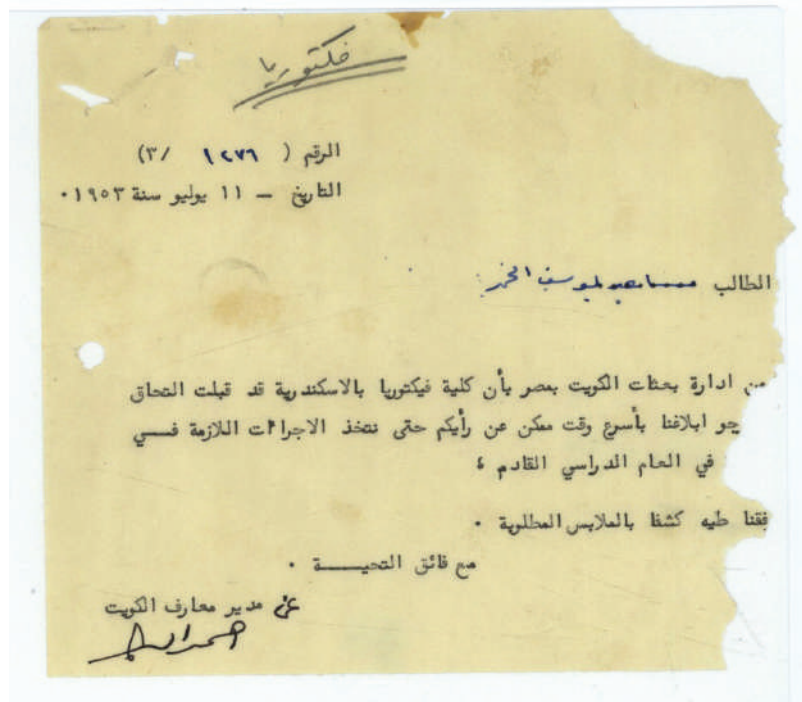 فكتوريا
الرقم ( ١٢٧٦ /٣)
التاريخ — ١١ يوليو سنة ١٩٥٣٠
الطالب يوسف
من ادارة بعثات الكويت بمصر بأن كلية فيكتوريا بالاسكندرية قد قبلت التحاق
جو ابلاغنا بأسرع وقت ممكن عن رأيكم حتى نتخذ الاجراءات اللازمة فــي
في العام الدراسي القادم ؛
فقنا طيه كشفا بالملابس المطلوبة .
مع فائق التحيـــة .
عن مدير معارف الكويت